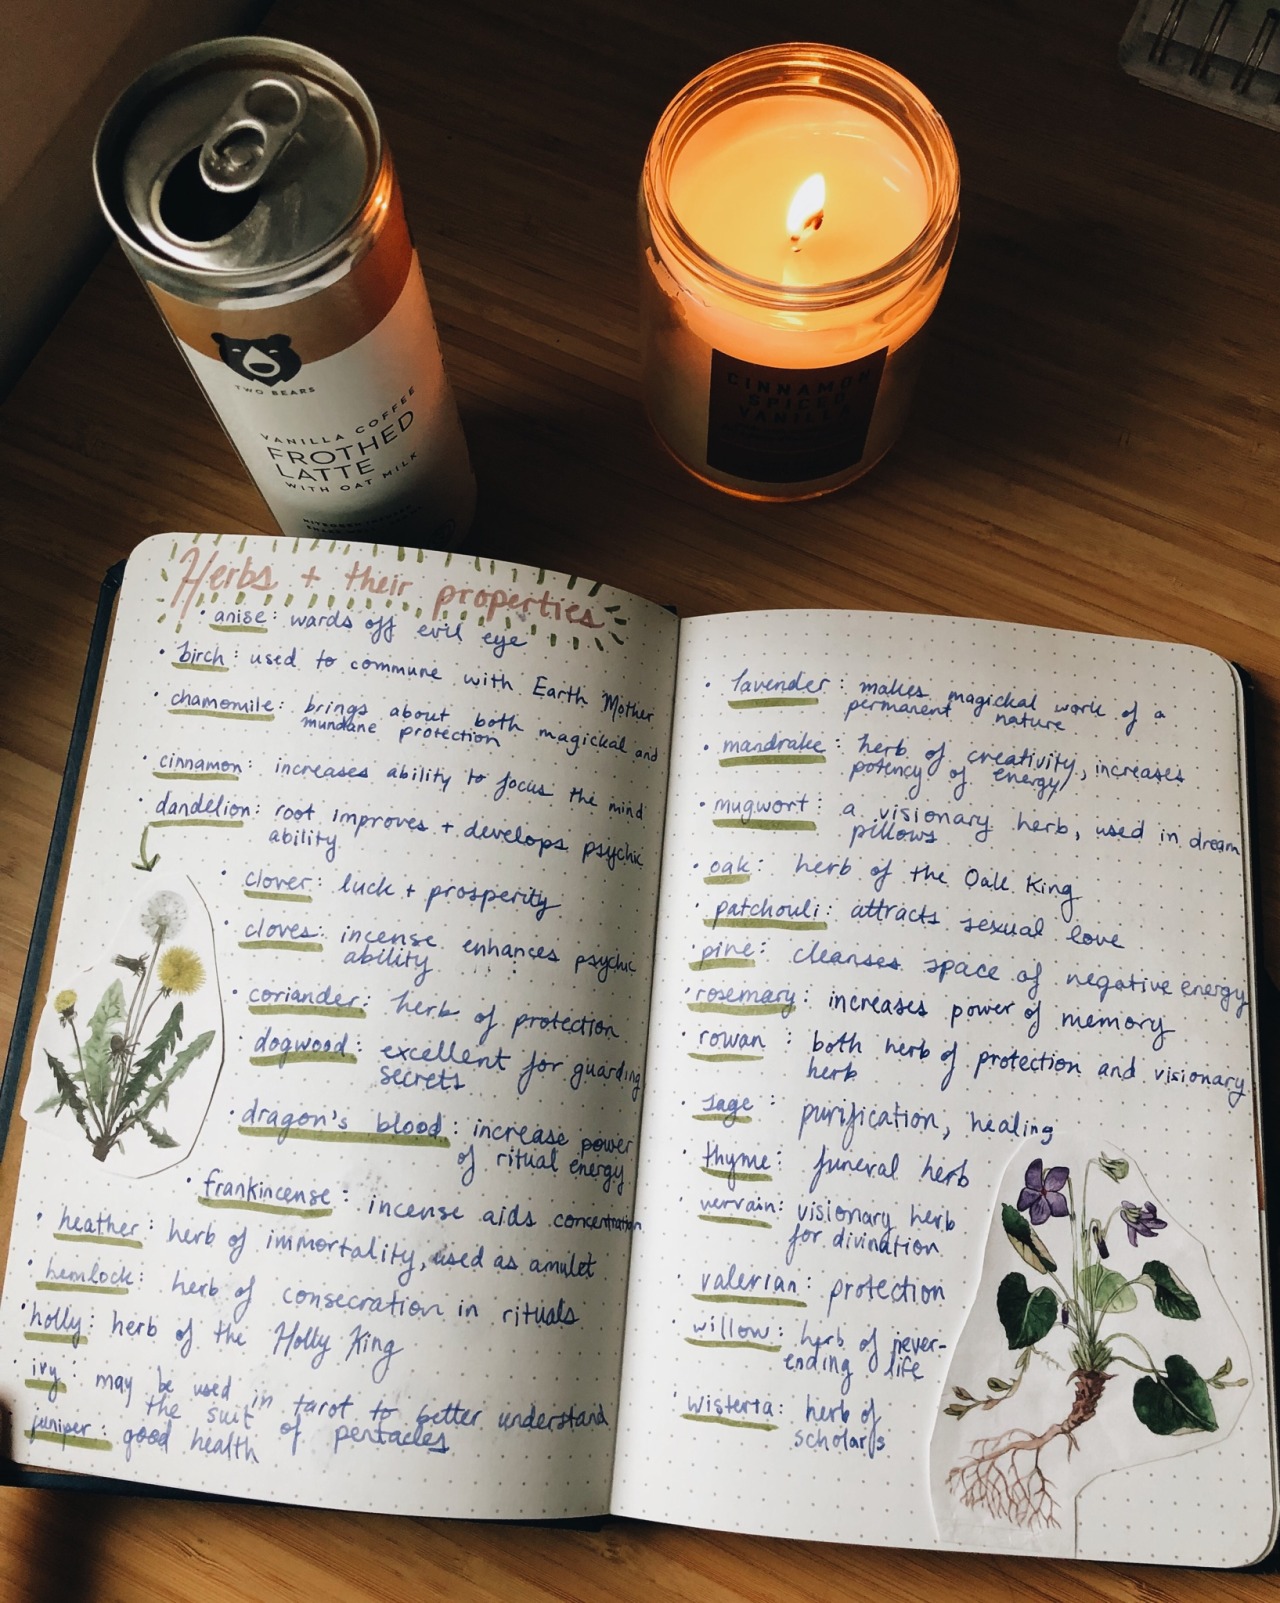 TWO BEARS
VANILLA COFFEE
FROTHED
LATTE
WITH OAT MILK
CINNAMON
SPICED
VANILLA
Herbs + their properties
• anise: wards off evil eye
• birch: used to commune with Earth Mother
• chamomile: brings about both magickal and
mundane protection
• cinnamon: increases ability to focus the mind
• dandelion: root improves + develops psychic
ability
• clover: luck + prosperity
• cloves: incense enhances psychic
ability
• coriander: herb of protection
• dogwood: excellent for guarding
secrets
• dragon's blood: increase power
of ritual energy
• frankincense: incense aids concentration
• heather: herb of immortality, used as amulet
• hemlock: herb of consecration in rituals
• holly: herb of the Holly King
• ivy: may be used in tarot to better understand
the suit of pentacles
juniper: good health
• lavender: makes magickal work of a
permanent nature
• mandrake: herb of creativity, increases
potency of energy
• mugwort: a visionary herb, used in dream
pillows
• oak: herb of the Oak King
• patchouli: attracts sexual love
• pine: cleanses space of negative energy
• rosemary: increases power of memory
• rowan: both herb of protection and visionary
herb
• sage: purification, healing
• thyme: funeral herb
• vervain: visionary herb
for divination
• valerian: protection
• willow: herb of never-
ending life
• wisteria: herb of
scholars